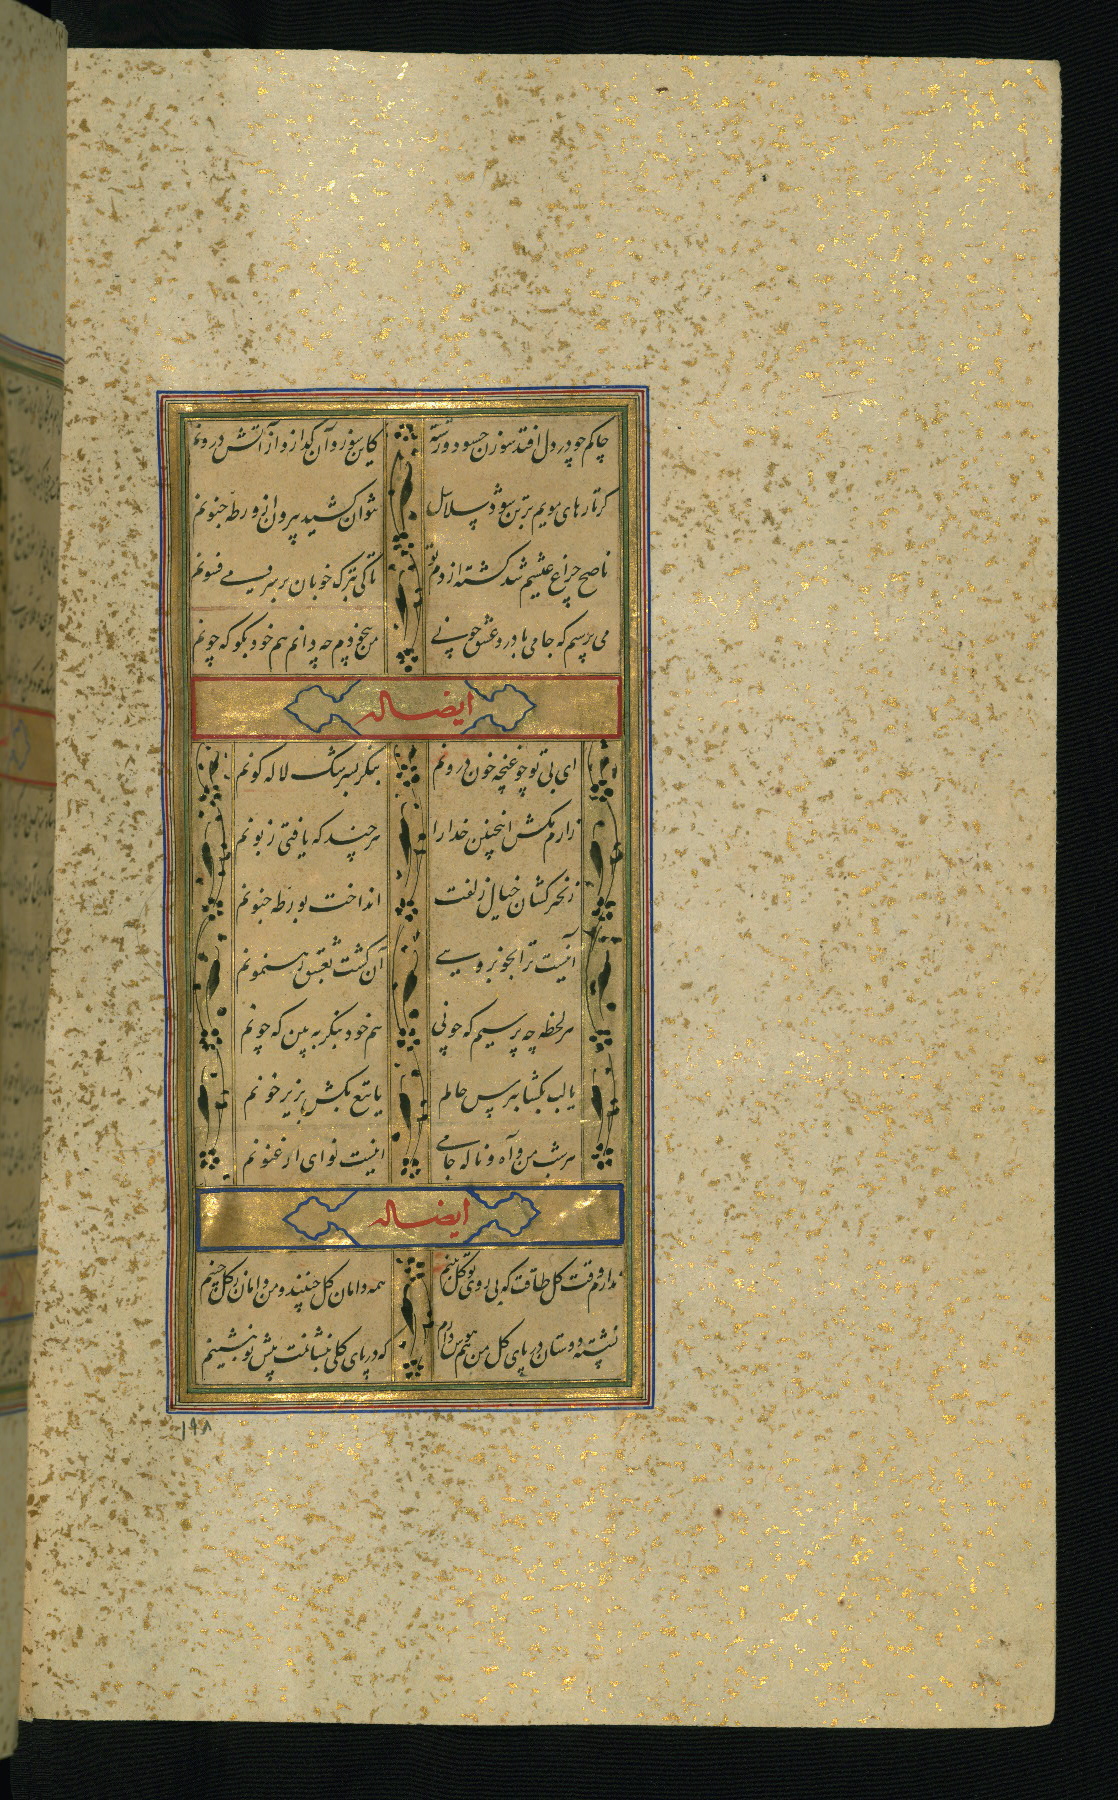 چاکم چو در دل افتد سوزن چسود و رشته کاین سوزد و آن گدازد از آتش درونم
گر تارهای مویم بر تن شود سلاسل نتوان کشید بیرون از ورطه جنونم
ناصح چراغ عیشم شد کشته از دم تو تا کی بترک خوبان بر سر دمی فسونم
می‌پرسیم که جامی با درد عشق چونی من بیخودم چه دانم هم خود بگو که چونم
ایضا له
ای بی تو چو غنچه خون درونم بنگر بسرشک لاله گونم
زارم مکش اینچنین خدا را هر چند که یافتی زبونم
زنجیر کشان خیال زلفت انداخت بورطه جنونم
آنیست ترا بجز نروسی آن گشت بعشق رهنمونم
هر لحظه چه پرسیم که چونی هم خود بنگر ببین که چونم
یا لب بگشا بپرس حالم یا تیغ بکش بریز خونم
هر شب من و آه و ناله جامی اینست نوای ارغنونم
ایضا له
ندارم وقت گل طاقت که بی روی تو گل بینم همه دامان گل چینند و من دامان ز گل چینم
نشسته دوستان در پای گل من هم هوس دارم که در پای گلی بنشانمت پیش تو بنشینم
۱۹۸